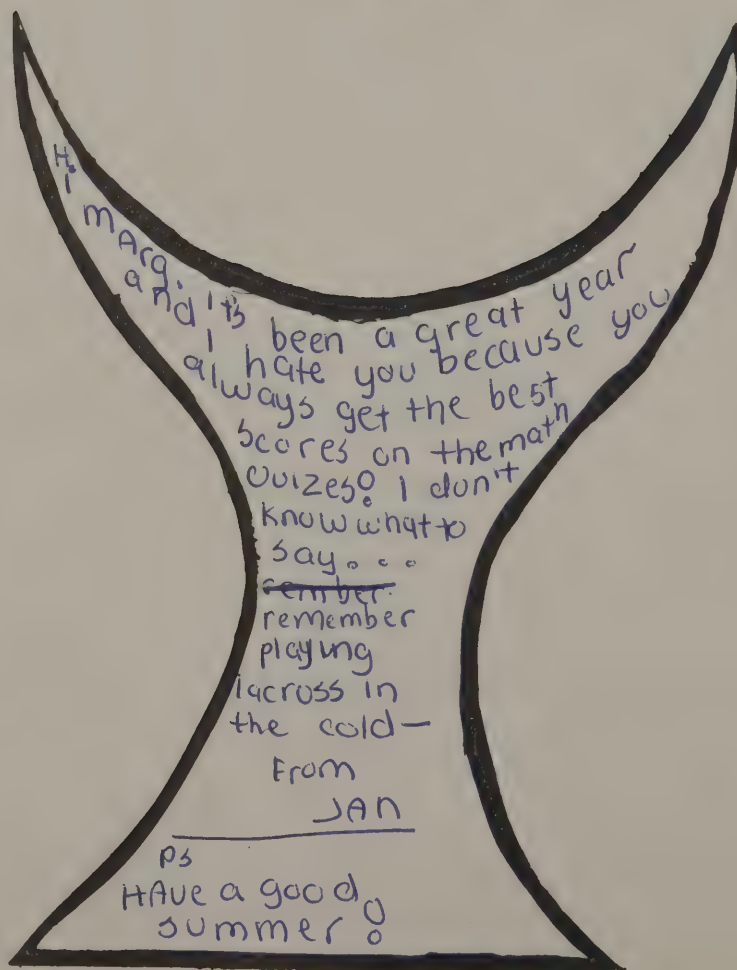 Hi
mArg.
it's been a great year
and I hate you because you
always get the best
scores on the math
quizes! I don't
know what to
say...
sember
remember
playing
lacross in
the cold—
From
JAN
PS
HAve a good
summer!